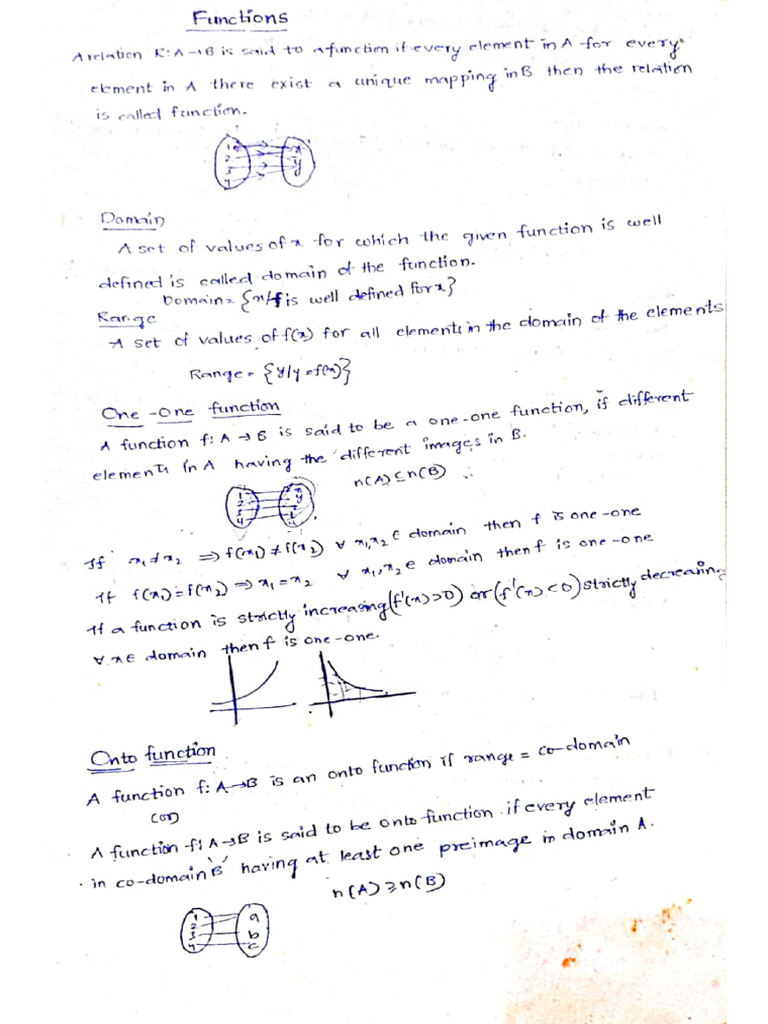 Functions
A relation R: A→B is said to a function if every element in A for every
element in A there exist a unique mapping in B then the relation
is called function.
1
2
3
4
x
y
Domain
A set of values of x for which the given function is well
defined is called domain of the function.
Domain = {x/f is well defined for x}
Range
A set of values of f(x) for all elements in the domain of the elements
Range = {y/y = f(x)}
One - one function
A function f: A → B is said to be a one-one function, if different
elements in A having the different images in B.
n(A) ≤ n(B)
1
2
3
4
x
y
z
If x₁ ≠ x₂ ⇒ f(x₁) ≠ f(x₂) ∀ x₁,x₂ ∈ domain then f is one-one
If f(x₁) = f(x₂) ⇒ x₁ = x₂ ∀ x₁,x₂ ∈ domain then f is one-one
If a function is strictly increasing (f'(x) > 0) or (f'(x) < 0) strictly decreasing
∀ x ∈ domain then f is one-one.
Onto function
A function f: A→B is an onto function if range = co-domain
(or)
A function f: A→B is said to be onto function if every element
in co-domain 'B' having at least one preimage in domain A.
n(A) ≥ n(B)
1
2
3
4
a
b
c